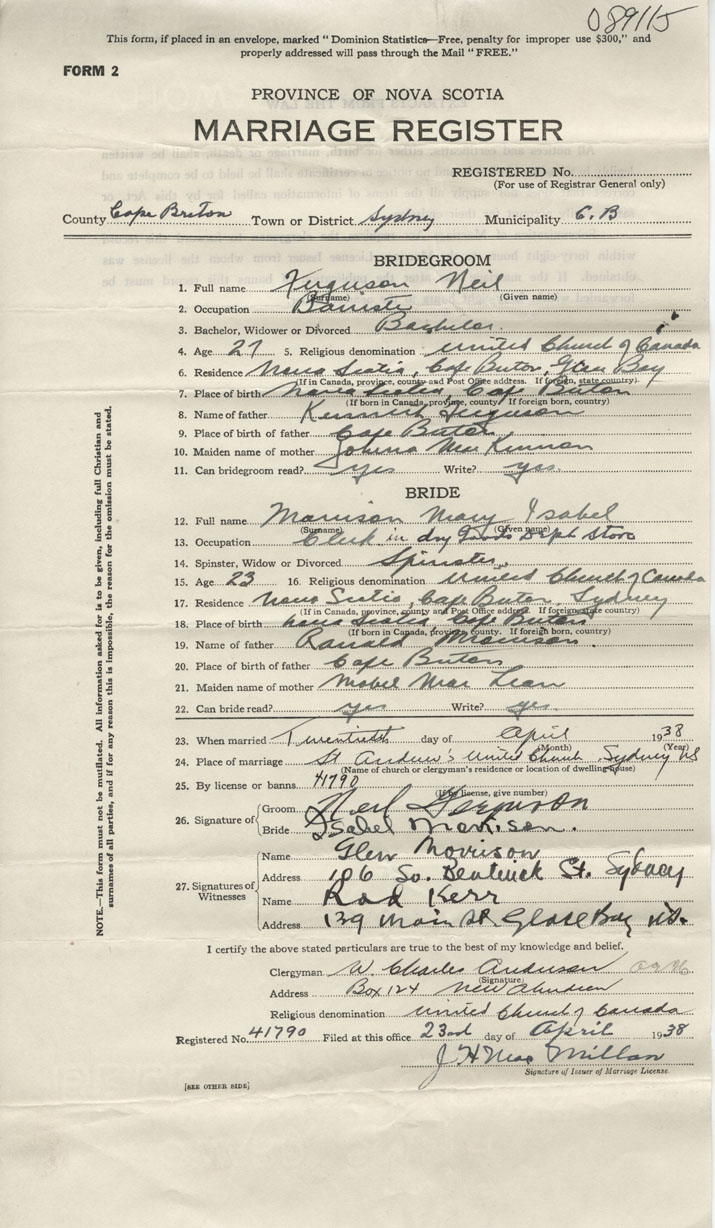 089115
This form, if placed in an envelope, marked "Dominion Statistics—Free, penalty for improper use $300," and
properly addressed will pass through the Mail "FREE."
FORM 2
PROVINCE OF NOVA SCOTIA
MARRIAGE REGISTER
REGISTERED No.
(For use of Registrar General only)
County Cape Breton Town or District Sydney Municipality C.B
BRIDEGROOM
1. Full name Ferguson Neil
(Surname) (Given name)
2. Occupation Barrister
3. Bachelor, Widower or Divorced Bachelor.
4. Age 27 5. Religious denomination United Church of Canada
6. Residence Nova Scotia, Cape Breton, Glace Bay
(If in Canada, province, county and Post Office address. If foreign, state country).
7. Place of birth Nova Scotia, Cape Breton
(If born in Canada, province, county If foreign born, country)
8. Name of father Kenneth Ferguson
9. Place of father Cape Breton
10. Maiden name of mother Johena MacKinnon
11. Can bridegroom read? yes Write? yes.
BRIDE
12. Full name Morrison Mary Isabel
(Surname) (Given name)
13. Occupation Clerk in dry Goods Deph Store
14. Spinster, Widow or Divorced Spinster.
15. Age 23 16. Religious denomination United Church of Canada
17. Residence Nova Scotia, Cape Breton, Sydney
(If in Canada, province, county and Post Office address. If foreign state country)
18. Place of birth Nova Scotia, Cape Breton
(If born in Canada, province, county. If foreign born, country)
19. Name of father Ronald Morrison.
20. Place of birth of father Cape Breton
21. Maiden name of mother Mabel MacLean
22. Can bride read? yes Write? yes.
23. When married Twentieth day of April 1938
(Month) (Year)
24. Place of marriage St Andrew's United Church, Sydney NS
(Name of church or clergyman's residence or location of dwelling-house)
25. By license or banns 41790
(If by license, give number)
26. Signature of Groom Neil Ferguson
Bride Isabel Morrison.
27. Signatures of Witnesses
Name Glen Morrison
Address 106 So. Bentinck St. Sydney
Name Rod Kerr
Address 139 Main St. Glace Bay N.S.
I certify the above stated particulars are true to the best of my knowledge and belief.
Clergyman W. Charles Anderson
(Signature)
Address Box 124 New Aberdeen
Religious denomination United Church of Canada
Registered No. 41790 Filed at this office 23rd day of April 1938
J H MacMillan
Signature of Issuer of Marriage License.
[SEE OTHER SIDE]
NOTE.—This form must not be mutilated. All information asked for is to be given, including full Christian and
surnames of all parties, and if for any reason this is impossible, the reason for the omission must be stated.